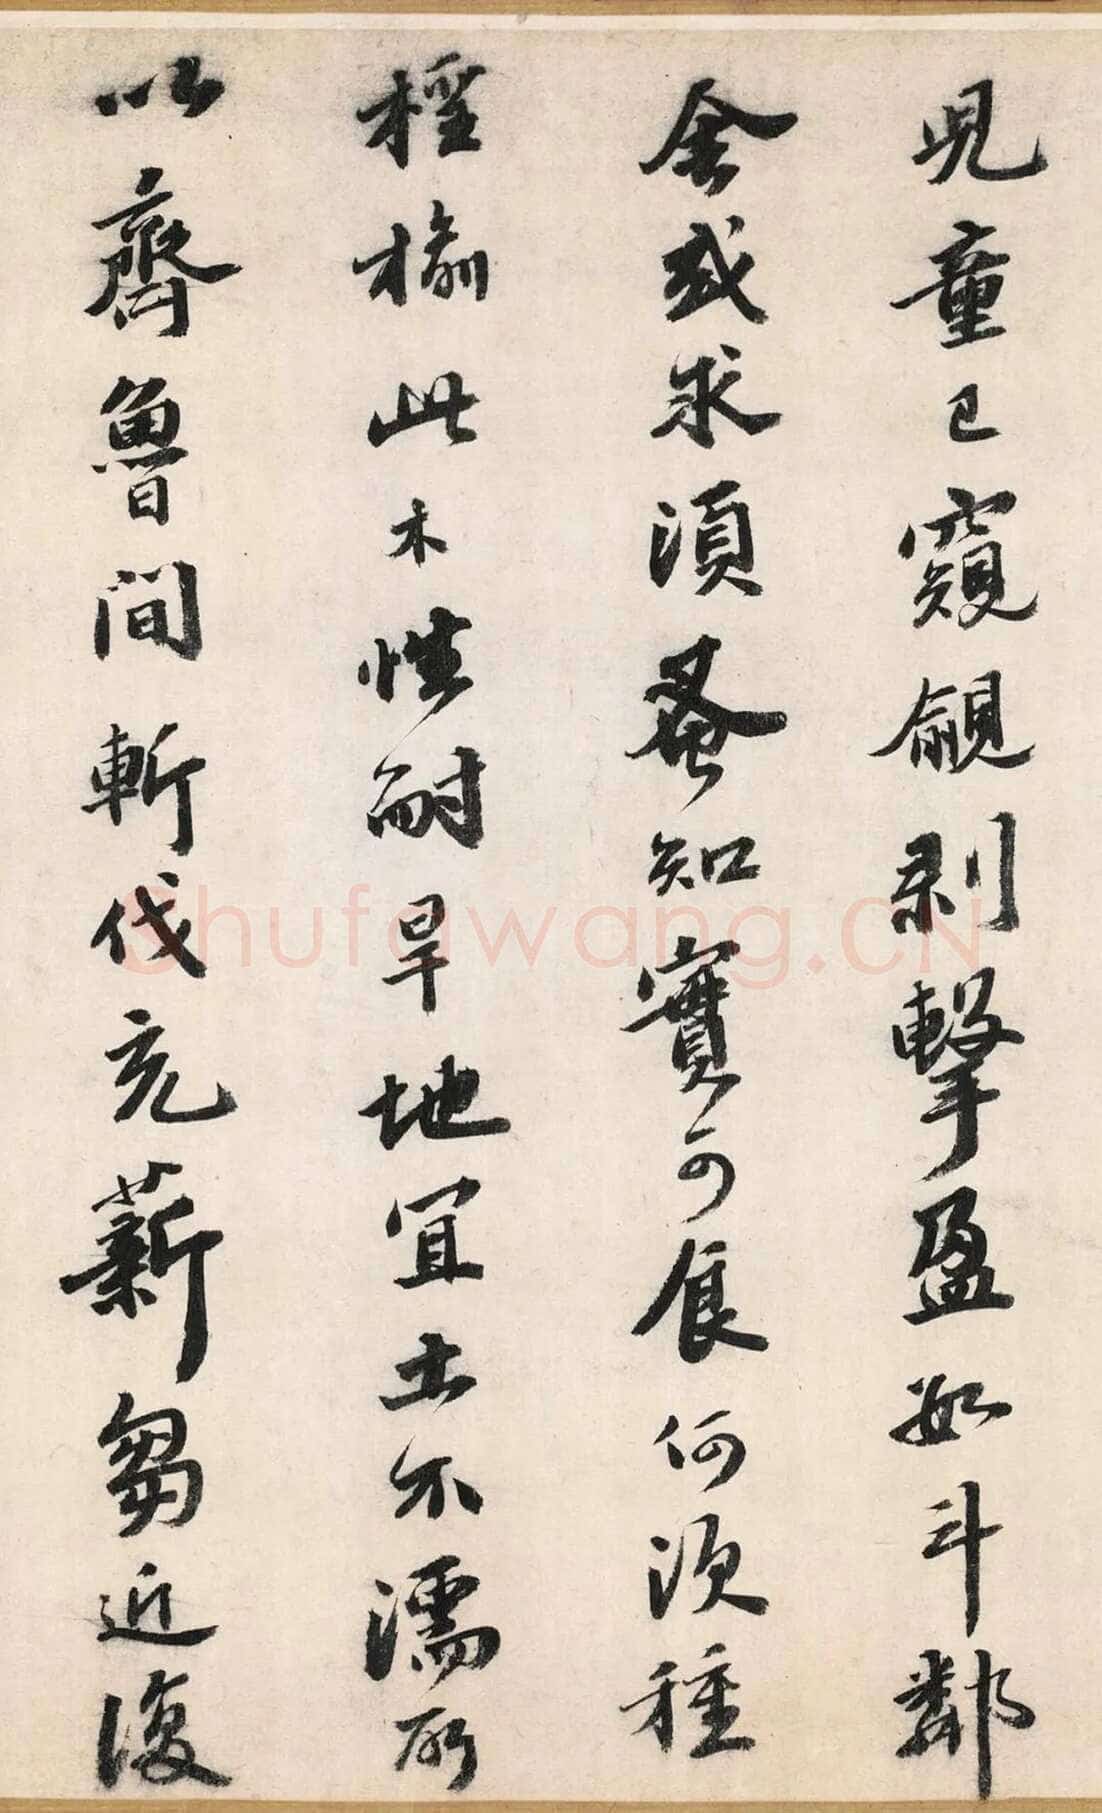 児童已窺覦剥擊盈如斗鄰
舍或求湏蚤知實可食何湏種
桱榆此木性耐旱地宜土不濡所
以齊魯間斬伐充薪芻近復
Shufawang.CN